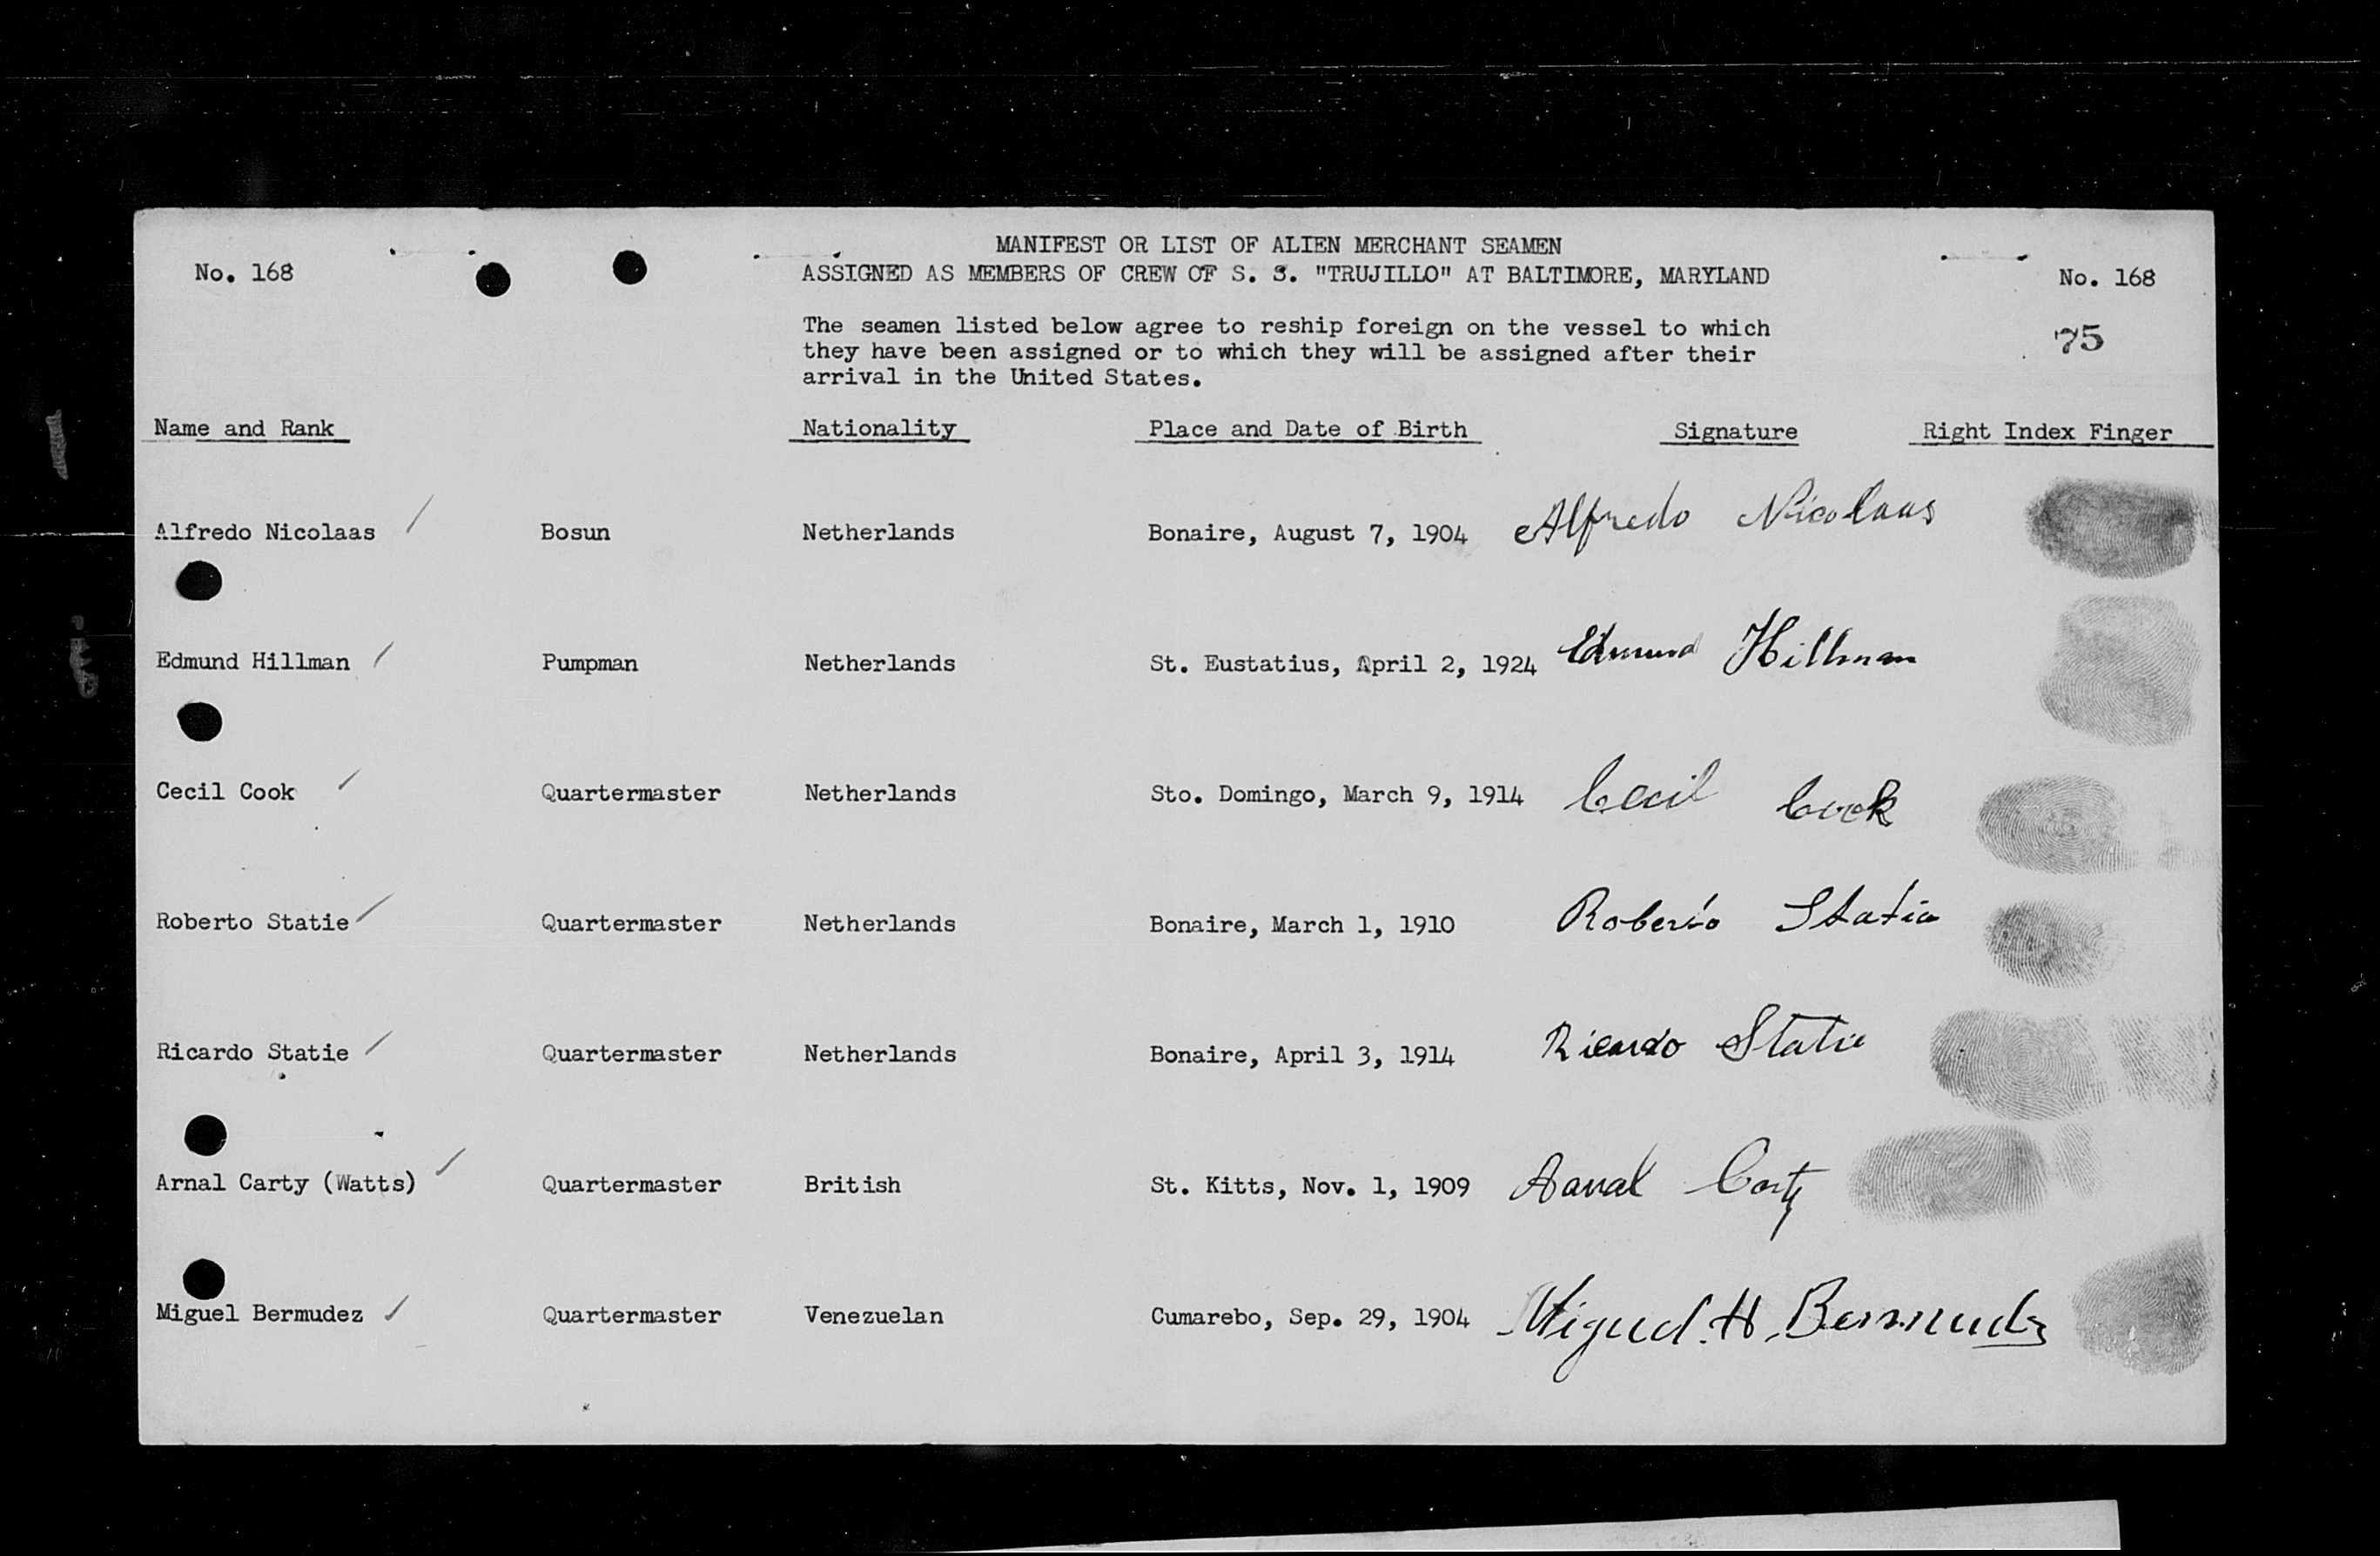 MANIFEST OR LIST OF ALIEN MERCHANT SEAMEN
No. 168 ASSIGNED AS MEMBERS OF CREW OF S. S. "TRUJILLO" AT BALTIMORE, MARYLAND No. 168
The seamen listed below agree to reship foreign on the vessel to which
they have been assigned or to which they will be assigned after their
arrival in the United States.
75
Name and Rank Nationality Place and Date of Birth Signature Right Index Finger
Alfredo Nicolaas Bosun Netherlands Bonaire, August 7, 1904 Alfredo Nicolaas
Edmund Hillman Pumpman Netherlands St. Eustatius, April 2, 1924 Edmund Hillman
Cecil Cook Quartermaster Netherlands Sto. Domingo, March 9, 1914 Cecil Cook
Roberto Statie Quartermaster Netherlands Bonaire, March 1, 1910 Roberto Statie
Ricardo Statie Quartermaster Netherlands Bonaire, April 3, 1914 Ricardo Statie
Arnal Carty (Watts) Quartermaster British St. Kitts, Nov. 1, 1909 Arnal Carty
Miguel Bermudez Quartermaster Venezuelan Cumarebo, Sep. 29, 1904 Miguel H. Bermudez